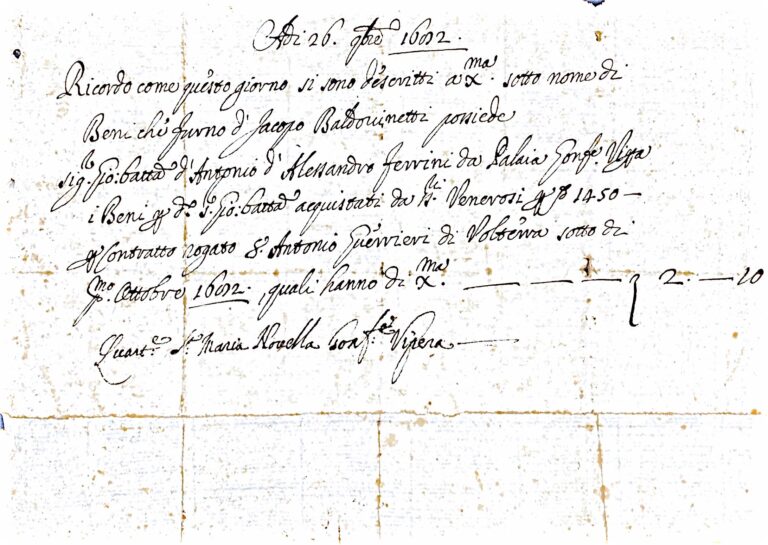 Adi 26. 9bre 1692.
Ricordo come questo giorno si sono descritti a Xma. sotto nome di
Beni che furno d' Jacopo Baldovinetti possiede
Sigre. Gio: batta d' Antonio d' Alessandro Ferrini da Palaia Gonfe.
i Beni do. Sr. Gio: batta acquistati da Venerosi 1450 —
Contratto rogato Sr. Antonio Guerrieri di Volterra sotto di
pmo. Ottobre 1692., quali hanno di Xma. — — — 2. — 10
Quarte. Sta. Maria Novella Gonfe. Vipera —